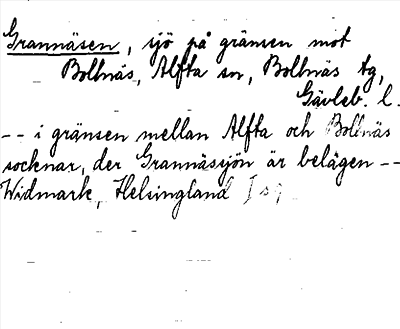 Grannäsen, sjö på gränsen mot
Bollnäs, Alfta sn, Bollnäs tg,
Gävleb. l.
-- i gränsen mellan Alfta och Bollnäs
socknar, der Grannässjön är belägen --
Widmark, Helsingland I s